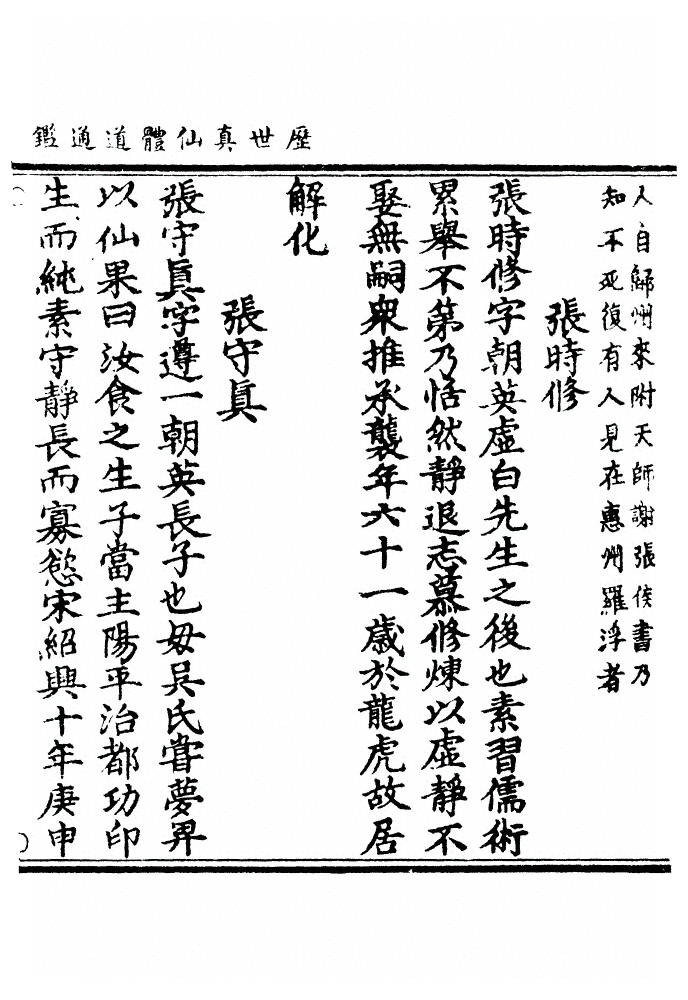 歷世真仙體道通鑑
人自歸州來附天師謝張侯書乃
知不死復有人見在惠州羅浮者
張時修
張時修字朝英虛白先生之後也素習儒術
累舉不第乃恬然靜退志慕修煉以虛靜不
娶無嗣衆推承襲年六十一歲於龍虎故居
解化
張守眞
張守眞字遵一朝英長子也毋吳氏嘗夢畀
以仙果曰汝食之生子當主陽平治都功印
生而純素守靜長而寡慾宋紹興十年庚申